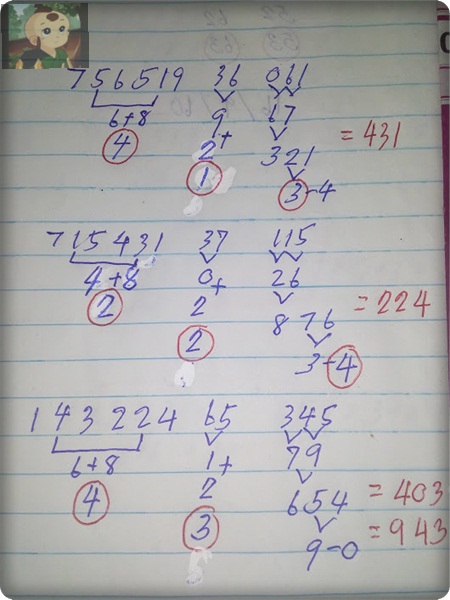 756519 36 061
6+8 9 67
4 2+ 321 = 431
1 3-4
715431 37 115
4+8 0+ 26
2 2 8 76 = 224
2 3-4
143224 65 345
6+8 1+ 79
4 2 654 = 403
3 9-0 = 943